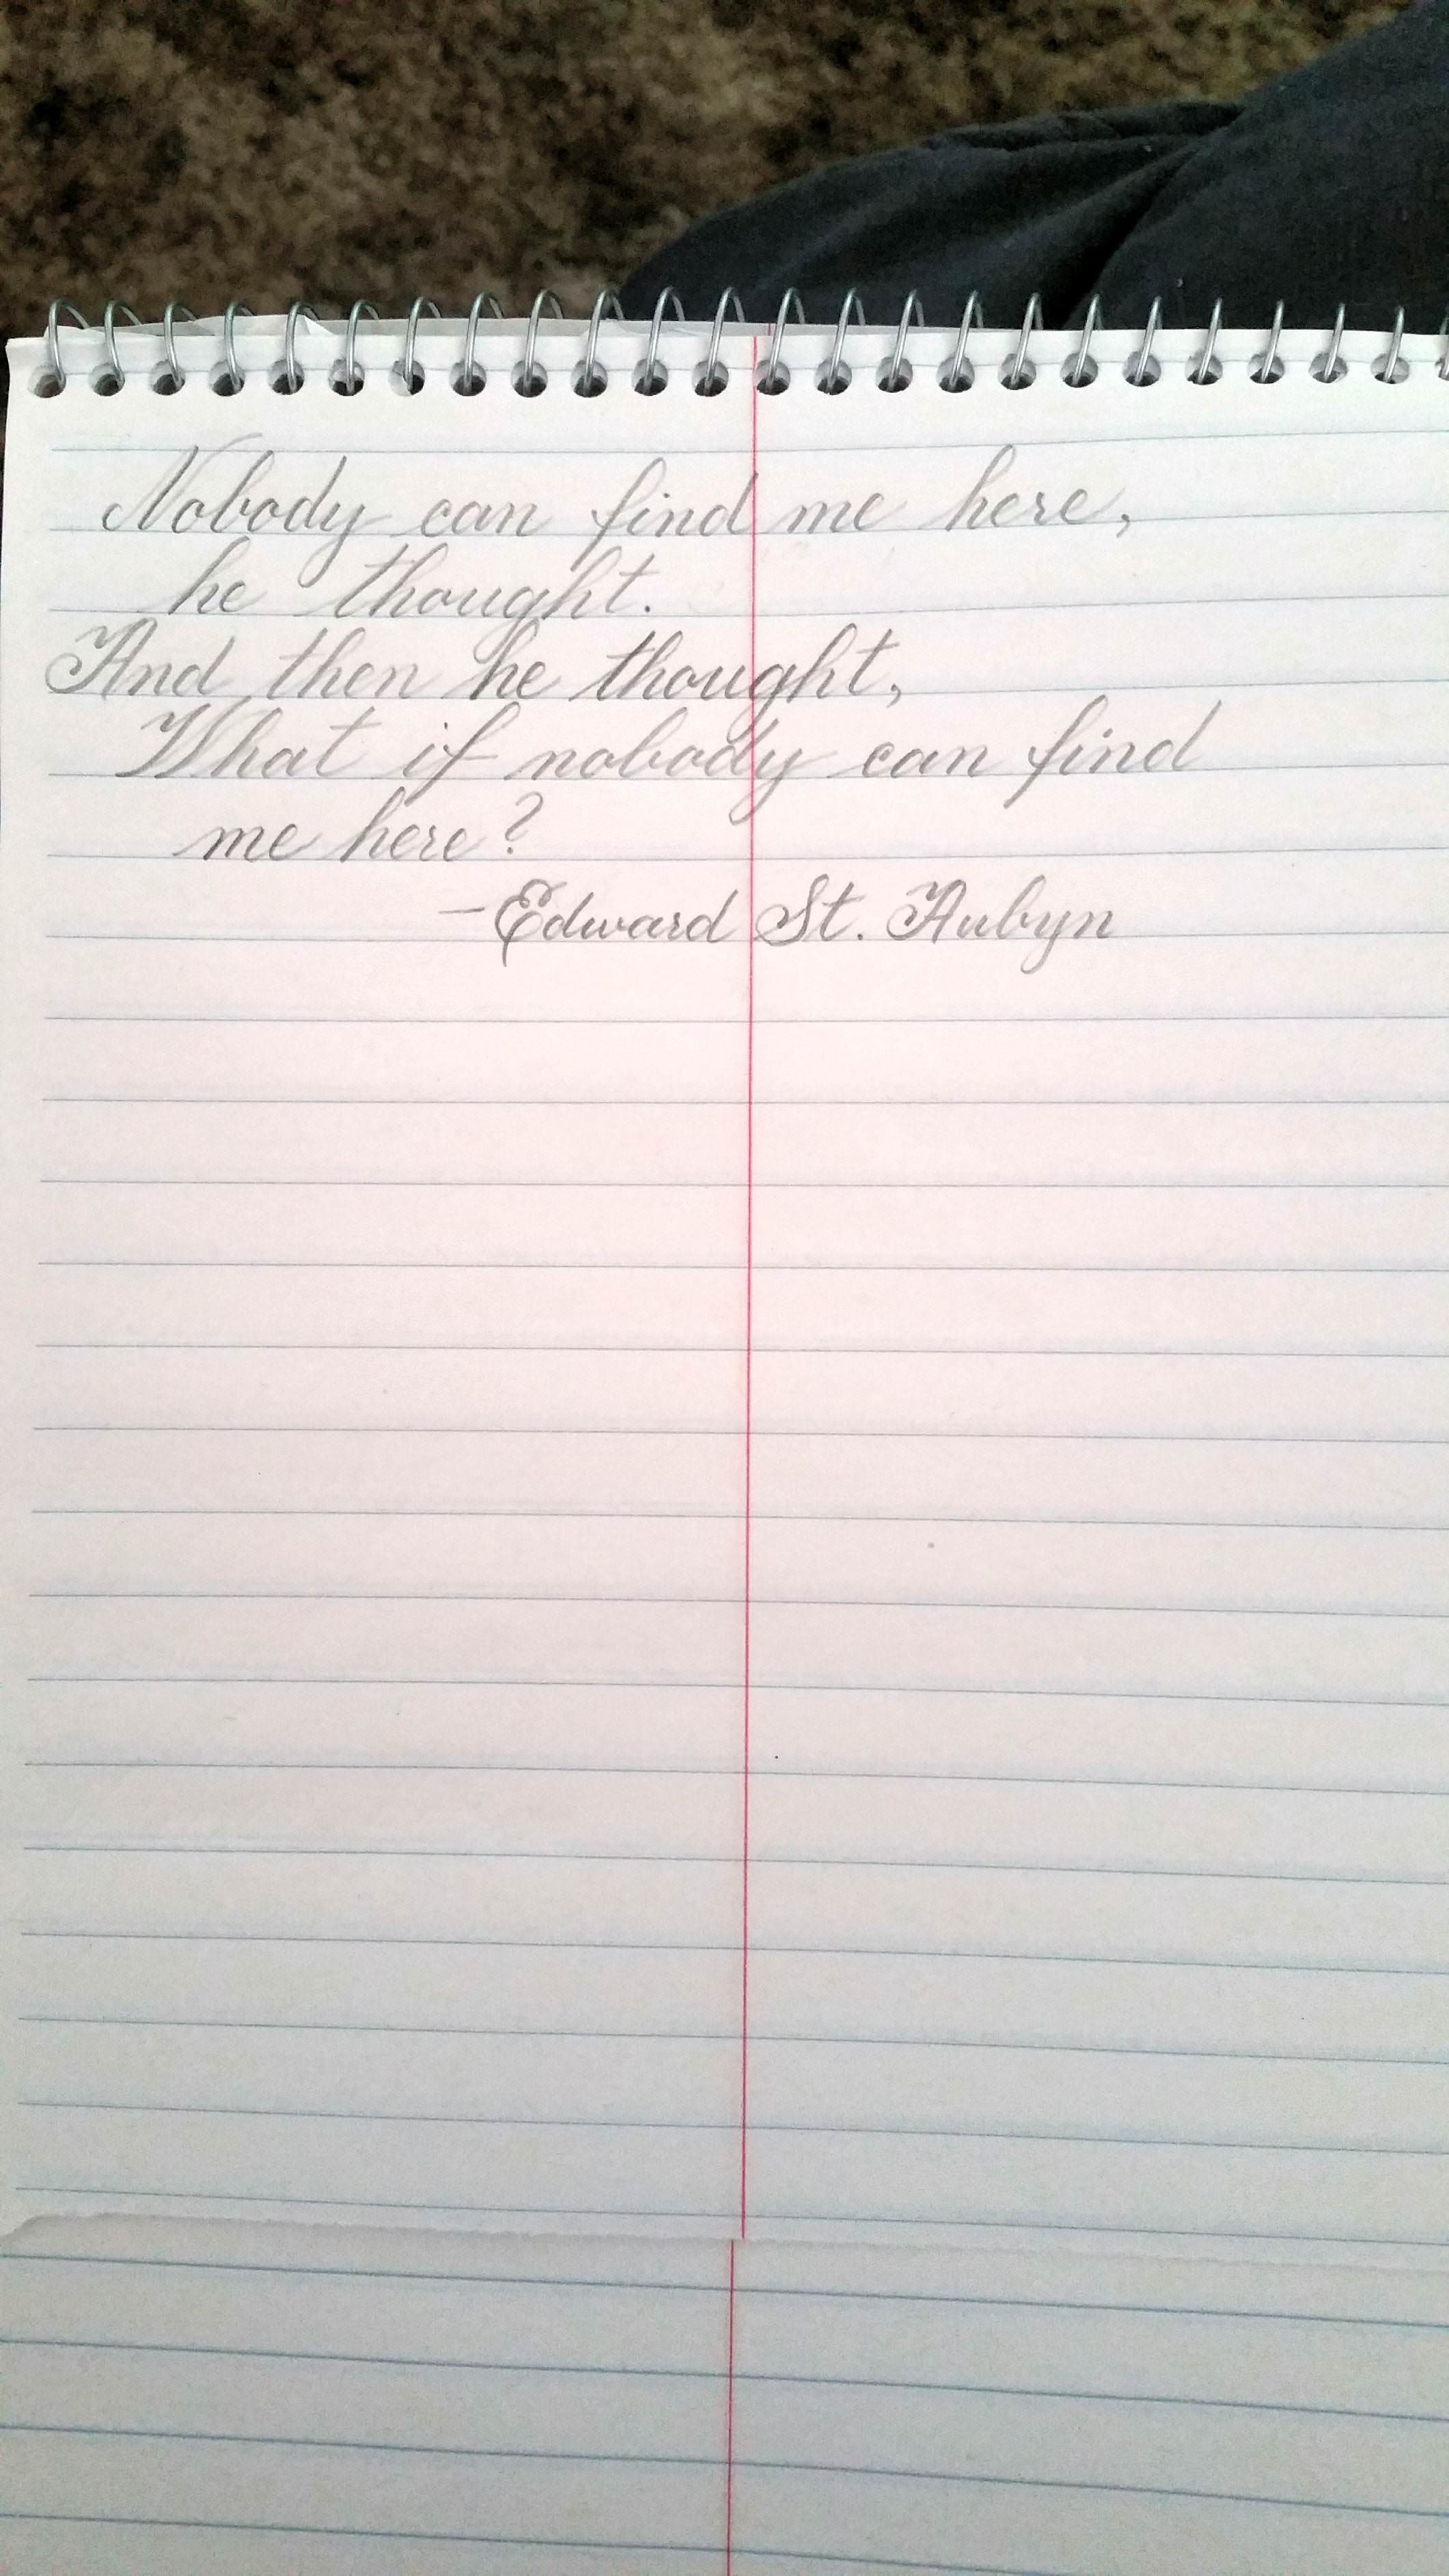 Nobody can find me here,
he thought.
And then he thought,
What if nobody can find
me here?
-Edward St. Aubyn